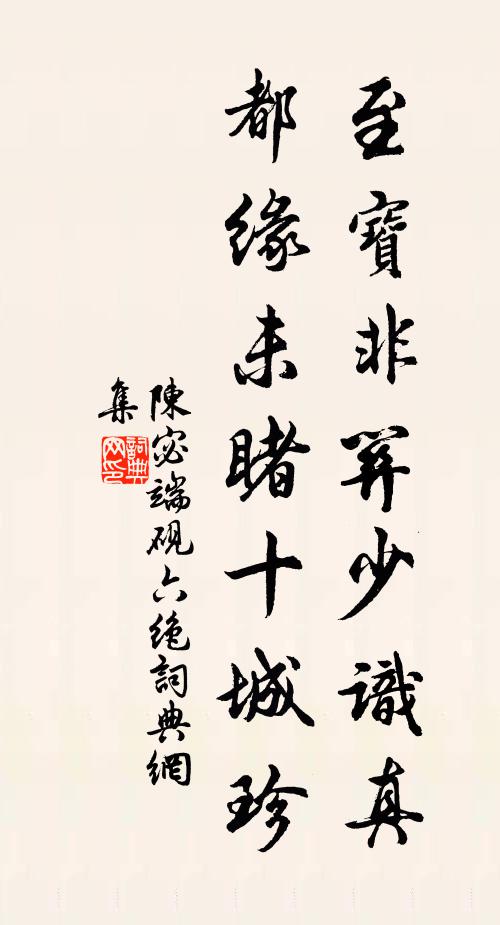 至寶非關少識真
都緣未睹十城珍
陳宓端硯六絶詞典網
集
詞典
网印